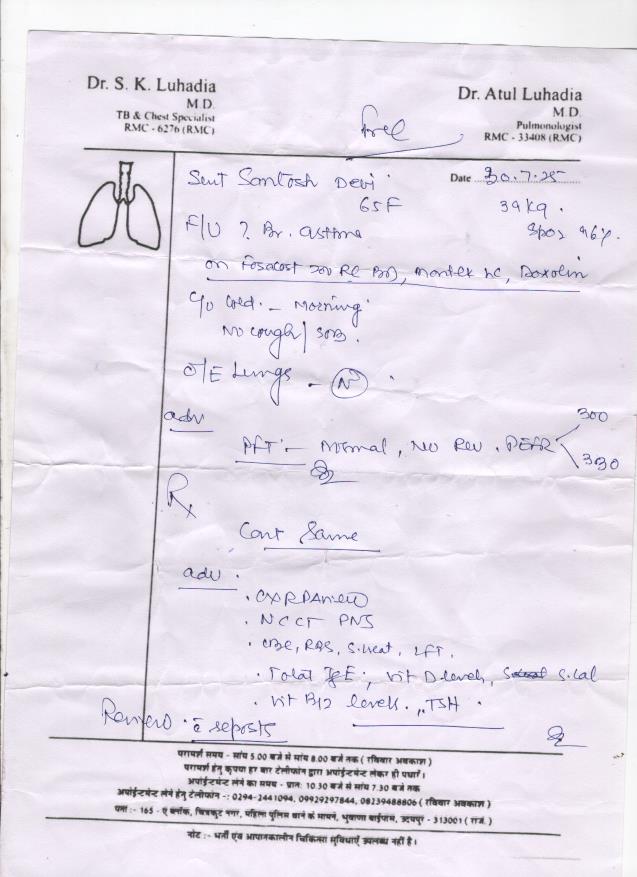 Dr. S. K. Luhadia
M D.
TB & Chest Specialist
RMC - 6276 (RMC)
Dr. Atul Luhadia
M D.
Pulmonologist
RMC - 33408 (RMC)
free
Smt Santosh Devi
Date 30.7.25
65F
39 kg.
F/U ? Br. asthma
SpO2 96%
on Fosacost 200 RC BD, Montek LC, Doxolin
C/o Cold. - Morning
No cough / SOB.
O/E Lungs - N
adv
PFT - Normal, No Rev. PEFR
300
330
Rx
Cont Same
adv.
. CXR PA view
. NCCT PNS
. CBC, RBS, S.creat, LFT.
. Total IgE, Vit D levels, S.Cal
. Vit B12 levels., TSH.
Review c̄ reports
परामर्श समय - सांय 5.00 बजे से सांय 8.00 बजे तक ( रविवार अवकाश )
परामर्श हेतु कृपया हर बार टेलीफोन द्वारा अपांईन्टमेन्ट लेकर ही पधारें।
अपांईन्टमेन्ट लेने का समय - प्रातः 10.30 बजे से सांय 7.30 बजे तक
अपांईन्टमेन्ट लेने हेतु टेलीफोन -: 0294-2441094, 09929297844, 08239488806 ( रविवार अवकाश )
पता :- 165 - ए ब्लॉक, चित्रकूट नगर, महिला पुलिस थाने के सामने, भुवाणा बाईपास, उदयपुर - 313001 ( राज. )
नोट :- भर्ती एवं आपातकालीन चिकित्सा सुविधाऐं उपलब्ध नहीं है।